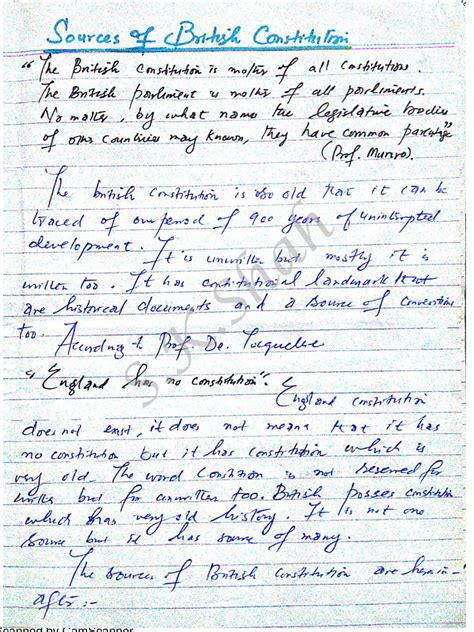 Sources of British Constitution
"The British Constitution is mother of all Constitutions.
The British parliment is mother of all parliments.
No matter, by what names the legislative bodies
of other countries may known, they have common parentage"
(Prof. Munro).
The british Constitution is so old that it can be
traced of over period of 900 years of uninterrupted
development. It is unwritten but mostly it is
written too. It has constitutional landmark that
are historical documents and a source of conventions
too. According to Prof. De. Tocqueline
"England has no constitution". England constitution
does not exist, it does not means that it has
no constitution but it has constitution which is
very old. The word Constitution is not reserved for
written but for unwritten too. British posses constitution
which has very old history. It is not one
source but it has source of many.
The sources of British constitution are herein-
after :-
S.K.Shah
Scanned by CamScanner